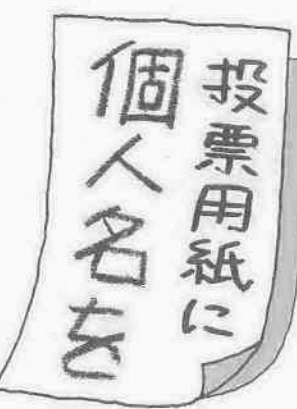 投票用紙に
個人名を